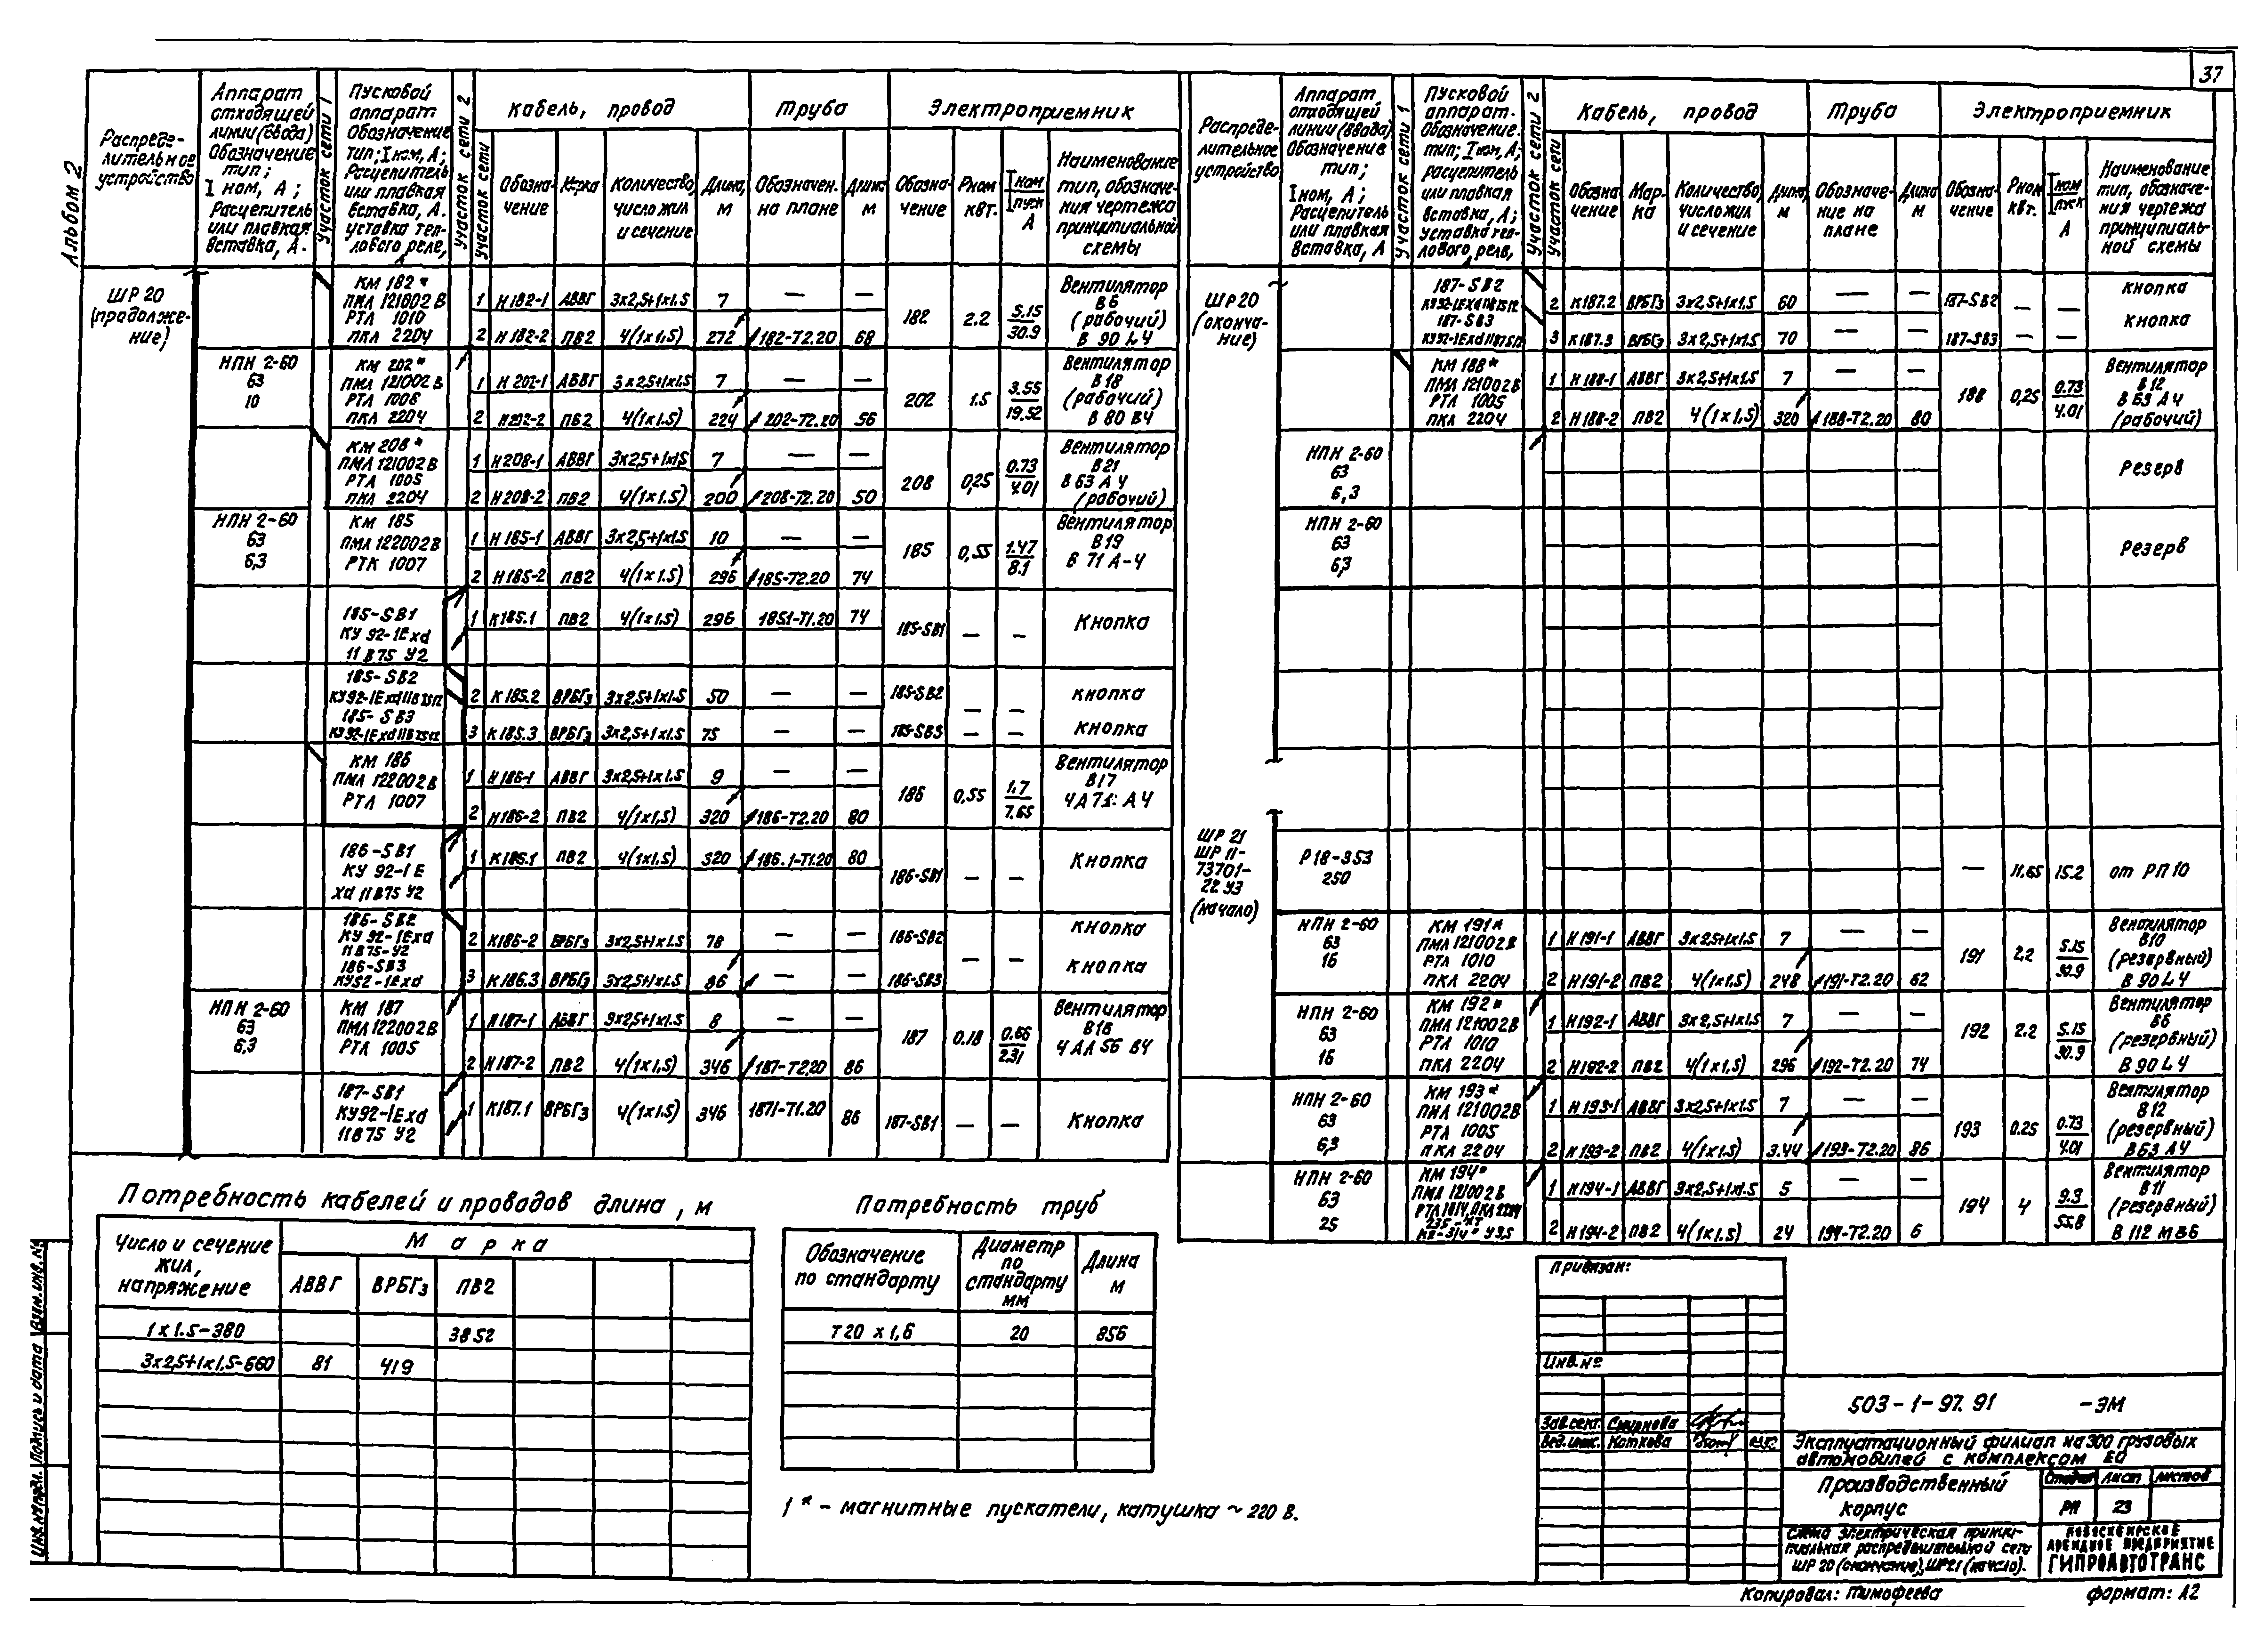 37
Альбом 2
Распреде-
лительное
устройство
Аппарат
отходящей
линии (ввода)
Обозначение
тип;
I ном, А;
Расцепитель
или плавкая
вставка, А.
Участок сети 1
Пусковой
аппарат
Обозначение
тип; I ном, А;
Расцепитель
или плавкая
вставка, А.
уставка теп-
лового реле,
А
Участок сети 2
Кабель, провод
Труба
Электроприемник
Участок сети
Обозна-
чение
Марка
Количество,
число жил
и сечение
Длина,
м
Обозначен.
на плане
Длина
м
Обозна-
чение
Рном
квт.
I ном
I пуск
А
Наименование
тип, обозначе-
ния чертежа
принципиальной
схемы
ШР 20
(продолже-
ние)
КМ 182 *
ПМЛ 121002 В
РТЛ 1010
ПКЛ 2204
1 Н182-1 АВВГ 3х2,5+1х1.5 7 — —
2 Н182-2 ПВ2 4(1х1.5) 272 182-Т2.20 68
182 2.2 5.15
30.9
Вентилятор
В6
(рабочий)
В 90 L 4
НПН 2-60
63
10
КМ 202*
ПМЛ 121002 В
РТЛ 1008
ПКЛ 2204
1 Н 202-1 АВВГ 3х2.5+1х1.5 7 — —
2 Н202-2 ПВ2 4(1х1.5) 224 202-Т2.20 56
202 1.5 3.55
19.52
Вентилятор
В18
(рабочий)
В 80 В4
КМ 208*
ПМЛ 121002 В
РТЛ 1005
ПКЛ 2204
1 Н208-1 АВВГ 3х2.5+1х1,5 7 — —
2 Н208-2 ПВ2 4(1х1.5) 200 208-Т2.20 50
208 0,25 0.73
4.01
Вентилятор
В21
В 63 А 4
(рабочий)
НПН 2-60
63
6,3
КМ 185
ПМЛ 122002 В
РТК 1007
1 Н185-1 АВВГ 3х2,5+1х1.5 10 — —
2 Н185-2 ПВ2 4(1х1.5) 296 185-Т2.20 74
185 0,55 1.47
8.1
Вентилятор
В19
В 71 А-4
185-SB1
КУ 92-1Exd
11 В75 У2
1 К185.1 ПВ2 4(1х1.5) 296 185.1-Т1.20 74
185-SB1 — —
Кнопка
185-SB2
КУ92-1Exd11В75У2
185-SB3
КУ92-1Exd11В75У2
2 К185.2 ВРБГз 3х2,5+1х1.5 50 — —
185-SB2 — — кнопка
3 К185.3 ВРБГз 3х2,5+1х1.5 75 — —
185-SB3 — — кнопка
КМ 186
ПМЛ 122002 В
РТЛ 1007
1 Н186-1 АВВГ 3х2,5+1х1.5 9 — —
2 Н186-2 ПВ2 4(1х1,5) 320 186-Т2.20 80
186 0,55 1,7
7.65
Вентилятор
В17
4А71: А 4
186-SB1
КУ 92-1 E
xd 11 В75 У2
1 К186.1 ПВ2 4(1х1.5) 320 186.1-Т1.20 80
186-SB1 — —
Кнопка
186-SB2
КУ 92-1Exd
11В75-У2
186-SB3
КУ92-1Exd
2 К186-2 ВРБГз 3х2,5+1х1.5 78 — —
186-SB2 — — кнопка
3 К186.3 ВРБГз 3х2,5+1х1.5 86 — —
186-SB3 кнопка
НПН 2-60
63
6,3
КМ 187
ПМЛ 122002 В
РТЛ 1005
1 Н187-1 АВВГ 3х2,5+1х1.5 8 — —
2 Н187-2 ПВ2 4(1х1,5) 346 187-Т2.20 86
187 0.18 0.66
2.31
Вентилятор
В16
4 АА 56 В4
187-SB1
КУ92-1Exd
11В75 У2
1 К187.1 ВРБГз 4(1х1.5) 346 187.1-Т1.20 86
187-SB1 — —
Кнопка
Распреде-
лительное
устройство
Аппарат
отходящей
линии (ввода)
Обозначение
тип;
I ном, А;
Расцепитель
или плавкая
вставка, А
Участок сети 1
Пусковой
аппарат.
Обозначение.
тип; I ном, А;
расцепитель
или плавкая
вставка, А;
уставка теп-
лового реле,
А
Участок сети 2
Кабель, провод
Труба
Электроприемник
Участок сети
Обозна-
чение
Мар-
ка
Количество,
число жил
и сечение
Длина,
м
Обозначе-
ние на
плане
Длина
м
Обозна-
чение
Рном
квт.
I ном
I пуск
А
Наименование
тип, обозначе-
ния чертежа
принципиаль-
ной схемы
ШР 20
(оконча-
ние)
187-SB2
КУ92-1Exd11В75У2
187-SB3
КУ92-1Exd11В75У2
2 К187.2 ВРБГз 3х2,5+1х1.5 60 — —
187-SB2 — — кнопка
3 К187.3 ВРБГз 3х2,5+1х1.5 70 — —
187-SB3 — — кнопка
КМ 188*
ПМЛ 121002 В
РТЛ 1005
ПКЛ 2204
1 Н188-1 АВВГ 3х2,5+1х1.5 7 — —
2 Н188-2 ПВ2 4(1х1,5) 320 188-Т2.20 80
188 0,25 0.73
4.01
Вентилятор
В12
В 63 А 4
(рабочий)
НПН 2-60
63
6,3
Резерв
НПН 2-60
63
6,3
Резерв
ШР 21
ШР 11-
73701-
22 У3
(начало)
Р18-353
250
— 11,65 15.2 от РП 10
НПН 2-60
63
16
КМ 191*
ПМЛ 121002 В
РТЛ 1010
ПКЛ 2204
1 Н191-1 АВВГ 3х2,5+1х1.5 7 — —
2 Н191-2 ПВ2 4(1х1,5) 248 191-Т2.20 62
191 2.2 5.15
30.9
Вентилятор
В10
(резервный)
В 90 L 4
НПН 2-60
63
16
КМ 192*
ПМЛ 121002 В
РТЛ 1010
ПКЛ 2204
1 Н192-1 АВВГ 3х2,5+1х1.5 7 — —
2 Н192-2 ПВ2 4(1х1,5) 296 192-Т2.20 74
192 2.2 5.15
30.9
Вентилятор
В6
(резервный)
В 90 L 4
НПН 2-60
63
6,3
КМ 193*
ПМЛ 121002 В
РТЛ 1005
ПКЛ 2204
1 Н193-1 АВВГ 3х2,5+1х1.5 7 — —
2 Н193-2 ПВ2 4(1х1,5) 3.44 193-Т2.20 86
193 0.25 0.73
4.01
Вентилятор
В12
(резервный)
В 63 А 4
НПН 2-60
63
25
КМ 194*
ПМЛ 121002 В
РТЛ 1014, ПКЛ 2204
1 Н194-1 АВВГ 3х2,5+1х1.5 5 — —
2 Н194-2 ПВ2 4(1х1.5) 24 194-Т2.20 6
194 4 9.3
55.8
Вентилятор
В11
(резервный)
В 112 МВ6
Потребность кабелей и проводов длина, м
Число и сечение
жил,
напряжение
Марка
АВВГ ВРБГз ПВ2
1х1.5-380 3852
3х2,5+1х1,5-660 81 419
Потребность труб
Обозначение
по стандарту
Диаметр
по
стандарту
мм
Длина
м
Т20 х 1,6 20 856
1 * - магнитные пускатели, катушка ~ 220 В.
Привязан:
Инв.№
Зав.сект. Смирнова
Вед.инж. Каткова
503-1-97.91 -ЭМ
Эксплуатационный филиал на 300 грузовых
автомобилей с комплексом ЕО
Производственный
корпус
Стадия Лист Листов
РП 23
Схема электрическая принци-
пиальная распределительной сети
ШР 20 (окончание), ШР21 (начало).
НОВОСИБИРСКОЕ
АРЕНДНОЕ ПРЕДПРИЯТИЕ
ГИПРОАВТОТРАНС
Инв.№ подл. Подпись и дата Взам.инв.№
Копировал: Тимофеева
формат: А2